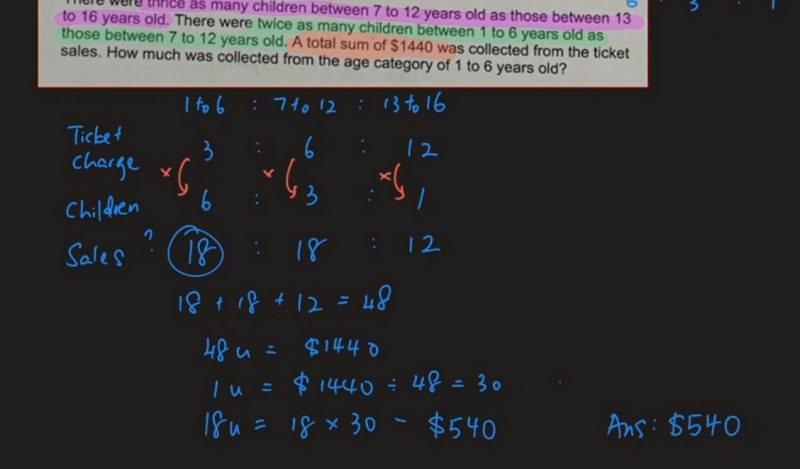 6 3 1
There were thrice as many children between 7 to 12 years old as those between 13
to 16 years old. There were twice as many children between 1 to 6 years old as
those between 7 to 12 years old. A total sum of $1440 was collected from the ticket
sales. How much was collected from the age category of 1 to 6 years old?
1 to 6 : 7 to 12 : 13 to 16
Ticket
charge 3 : 6 : 12
× × ×
Children 6 : 3 : 1
Sales ? 18 : 18 : 12
18 + 18 + 12 = 48
48u = $1440
1u = $1440 ÷ 48 = 30
18u = 18 × 30 - $540 Ans: $540